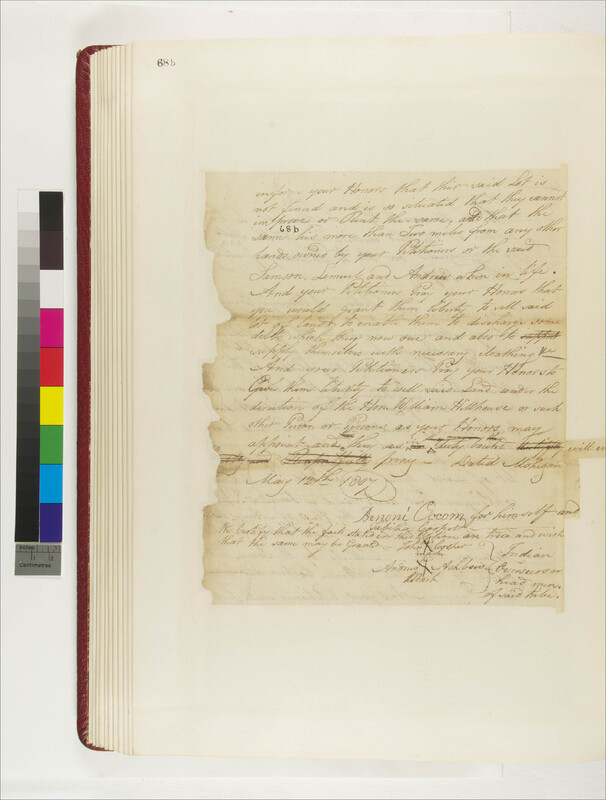 68b
inform your Honors that their said Lot is
not fenced and is so situated that they cannot
improve or Rent the same, and that the
same lies more than Two miles from any other
68b
lands owned by your Petitioners or the said
Samson, Lemuel and Andrew when in life.
And your Petitioners Pray your Honors that
you would grant them liberty to sell said
lot of land to enable them to discharge some
debts which they now owe and also to support
supply themselves with necessary cloathing &c
And your Petitioners Pray your Honors to
Give them liberty to sell said Land under the
direction of the Hon. William Hillhouse or such
other Person or Persons as your Honors may
appoint and they as in duty bound will ever
pray - Dated Mohegan
May 12th 1807
Benoni Occom for himself and
Tabitha Cooper
We Certify that the facts stated in this Petition are true and wish
that the same may be Granted
John X Cooper
mark
Ashbow
mark
Indian
Overseers or
head men
of said tribe.
Inches
Centimetres